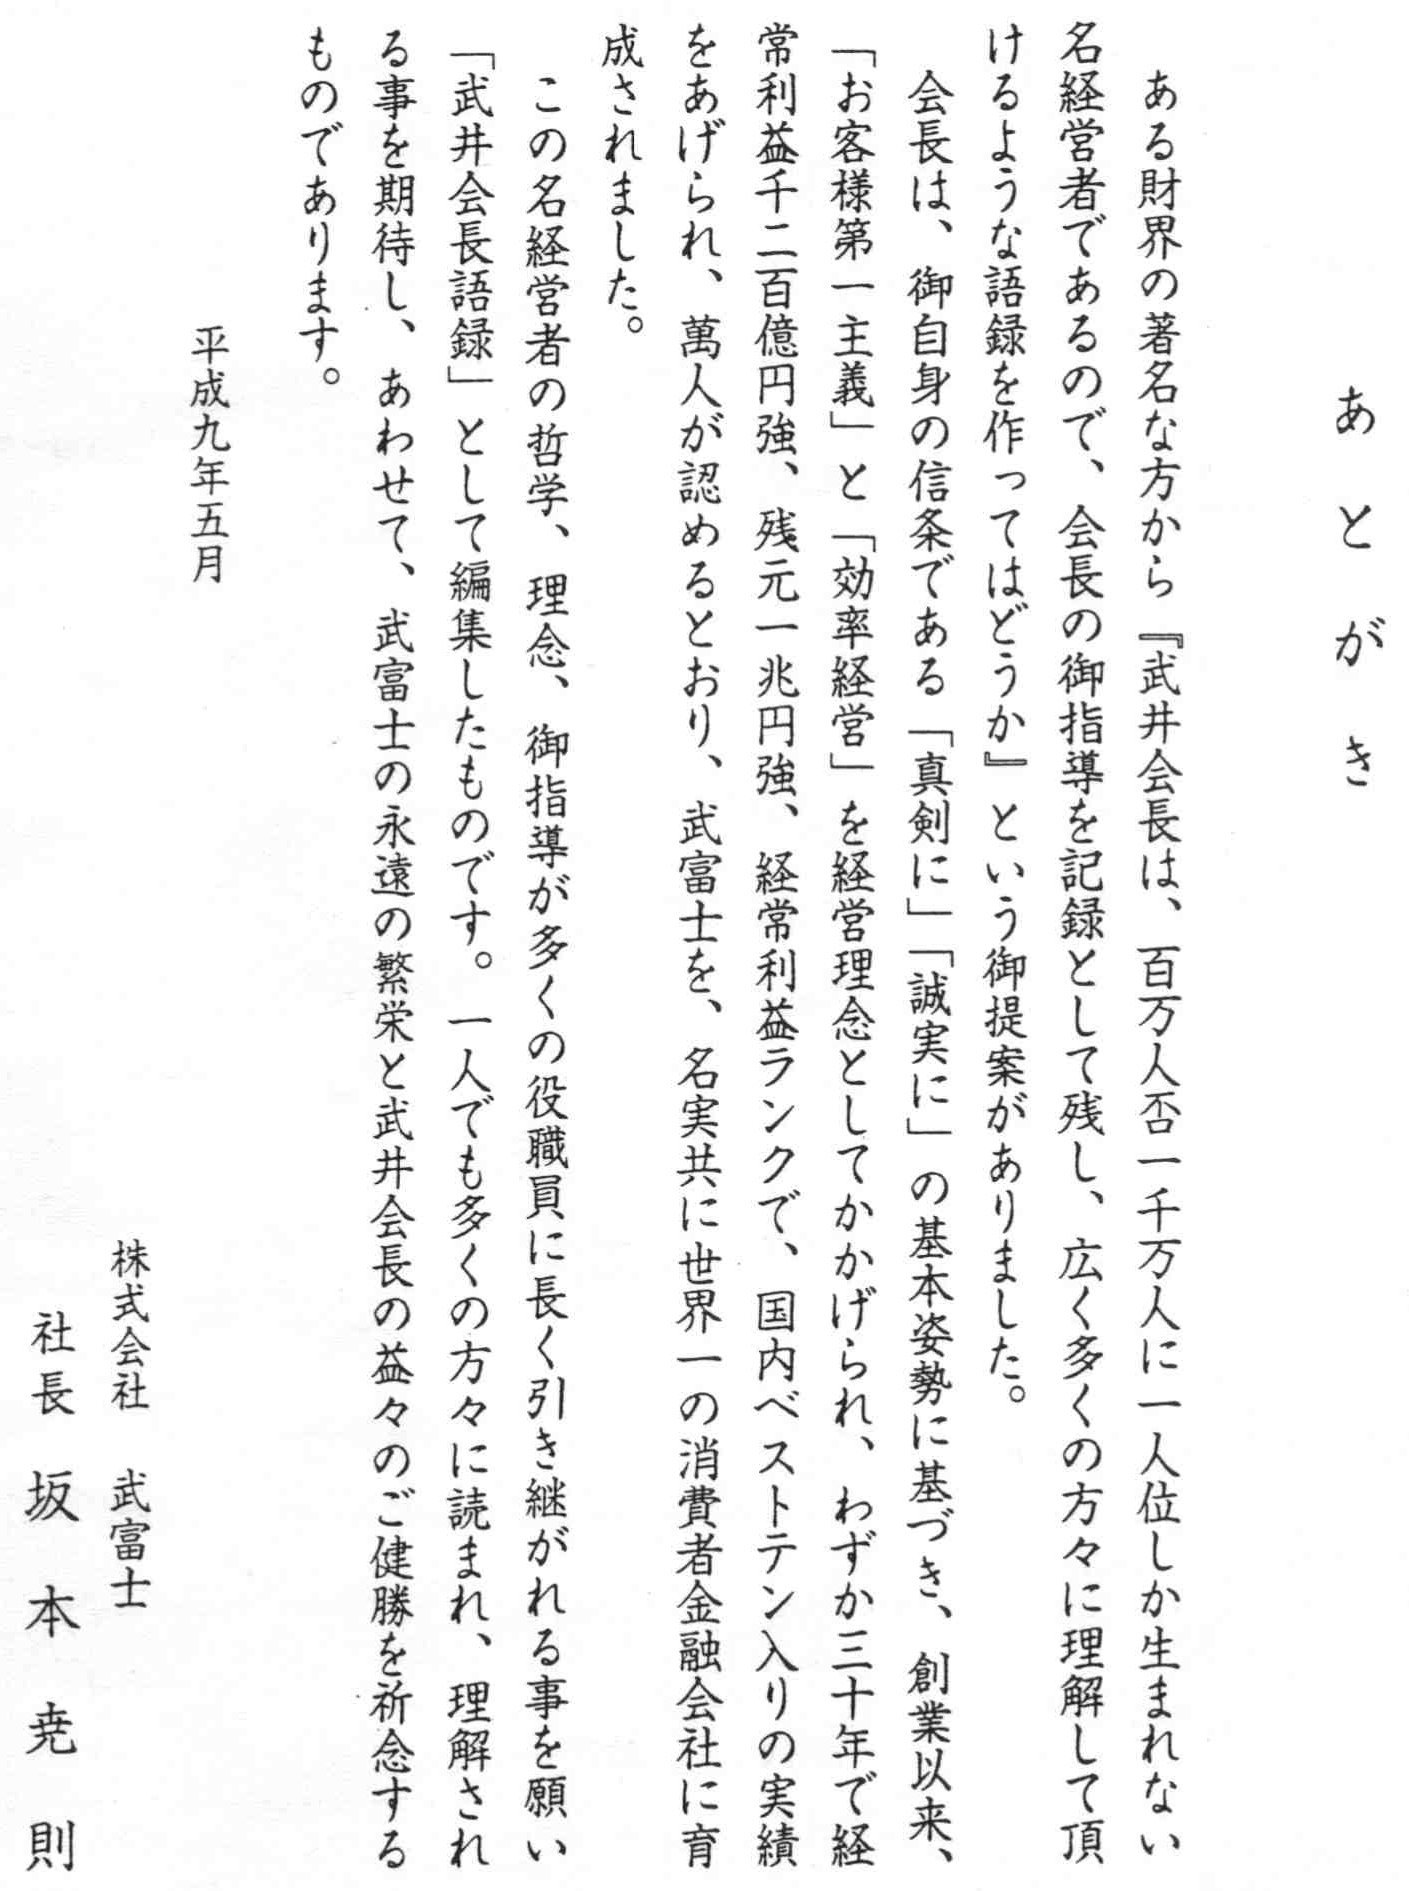 あとがき
ある財界の著名な方から『武井会長は、百万人否一千万人に一人位しか生まれない
名経営者であるので、会長の御指導を記録として残し、広く多くの方々に理解して頂
けるような語録を作ってはどうか』という御提案がありました。
会長は、御自身の信条である「真剣に」「誠実に」の基本姿勢に基づき、創業以来、
「お客様第一主義」と「効率経営」を経営理念としてかかげられ、わずか三十年で経
常利益千二百億円強、残元一兆円強、経常利益ランクで、国内ベストテン入りの実績
をあげられ、萬人が認めるとおり、武富士を、名実共に世界一の消費者金融会社に育
成されました。
この名経営者の哲学、理念、御指導が多くの役職員に長く引き継がれる事を願い
「武井会長語録」として編集したものです。一人でも多くの方々に読まれ、理解され
る事を期待し、あわせて、武富士の永遠の繁栄と武井会長の益々のご健勝を祈念する
ものであります。
平成九年五月
株式会社 武富士
社長 坂本尭則